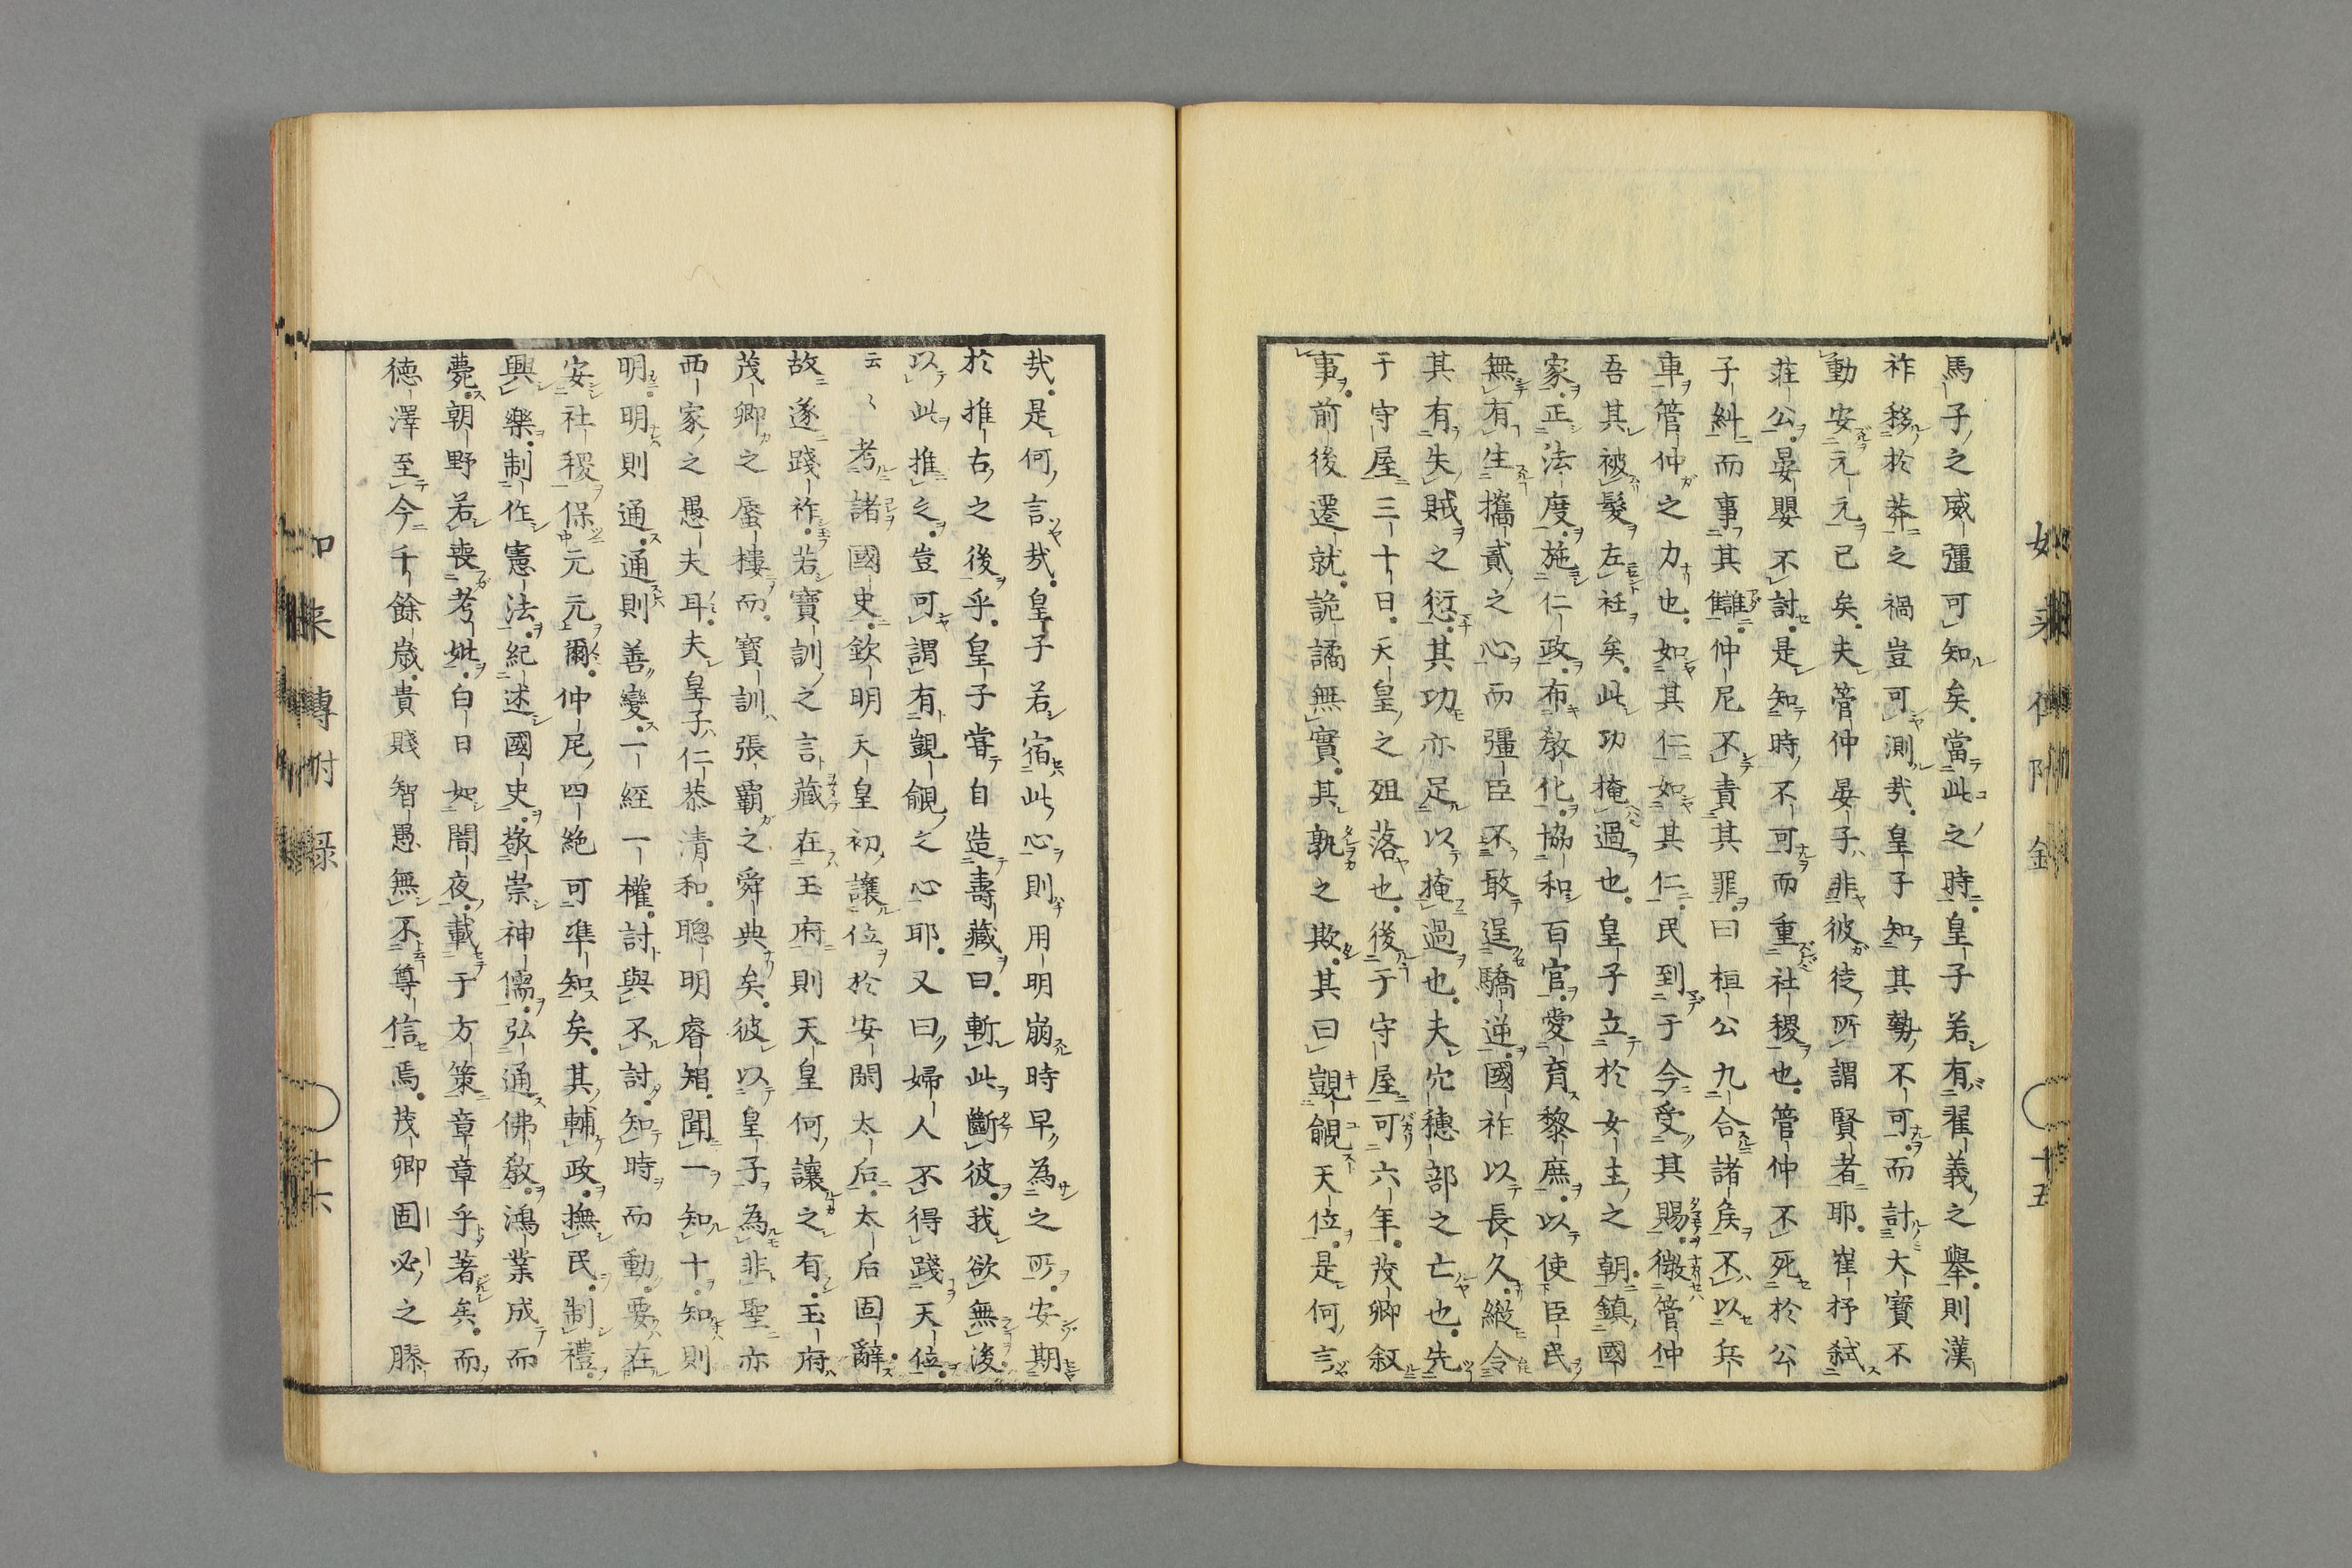 馬子之威彊可知矣當此之時皇子若有翟義之擧則漢
祚移於莽之禍豈可測哉皇子知其勢不可而計大寶不
動安元元已矣夫管仲晏子非彼徒所謂賢者耶崔杼弑
莊公晏嬰不討是知時不可而重社稷也管仲不死於公
子糾而事其讎仲尼不責其罪曰桓公九合諸矦不以兵
車管仲之力也如其仁如其仁民到于今受其賜微管仲
吾其被髮左衽矣此功掩過也皇子立於女主之朝鎮國
家正法度施仁政布教化協和百官愛育黎庶以使臣民
無有生攜貳之心而彊臣不敢逞驕逆國祚以長久縱令
其有失賊之衍其功亦足以掩過也夫穴穗部之亡也先
于守屋三十日天皇之殂落也後于守屋可六年茂卿叙
事前後遷就詭譎無實其孰之欺其曰覬覦天位是何言
哉是何言哉皇子若宿此心則用明崩時早為之所安期
於推古之後乎皇子甞自造壽藏曰斬此斷彼我欲無後
以此推之豈可謂有覬覦之心耶又曰婦人不得踐天位
云〻考諸國史欽明天皇初讓位於安閑太后太后固辭
故遂踐祚若寶訓之言藏在玉府則天皇何讓之有玉府
茂卿之蜃樓而寶訓張霸之舜典矣彼以皇子為非聖亦
西家之愚夫耳夫皇子仁恭清和聰明睿知聞一知十知則
明明則通通則善變一經一權討與不討知時而動要在
安社稷保元元爾仲尼四絶可準知矣其輔政撫民制禮
興樂制作憲法紀述國史敬崇神儒弘通佛教鴻業成而
薨朝野若喪考妣白日如闇夜載于方策章章乎著矣而
徳澤至今千餘歳貴賤智愚無不尊信焉茂卿固必之𦡀
如来傳附録
十五
如来傳附録
十六